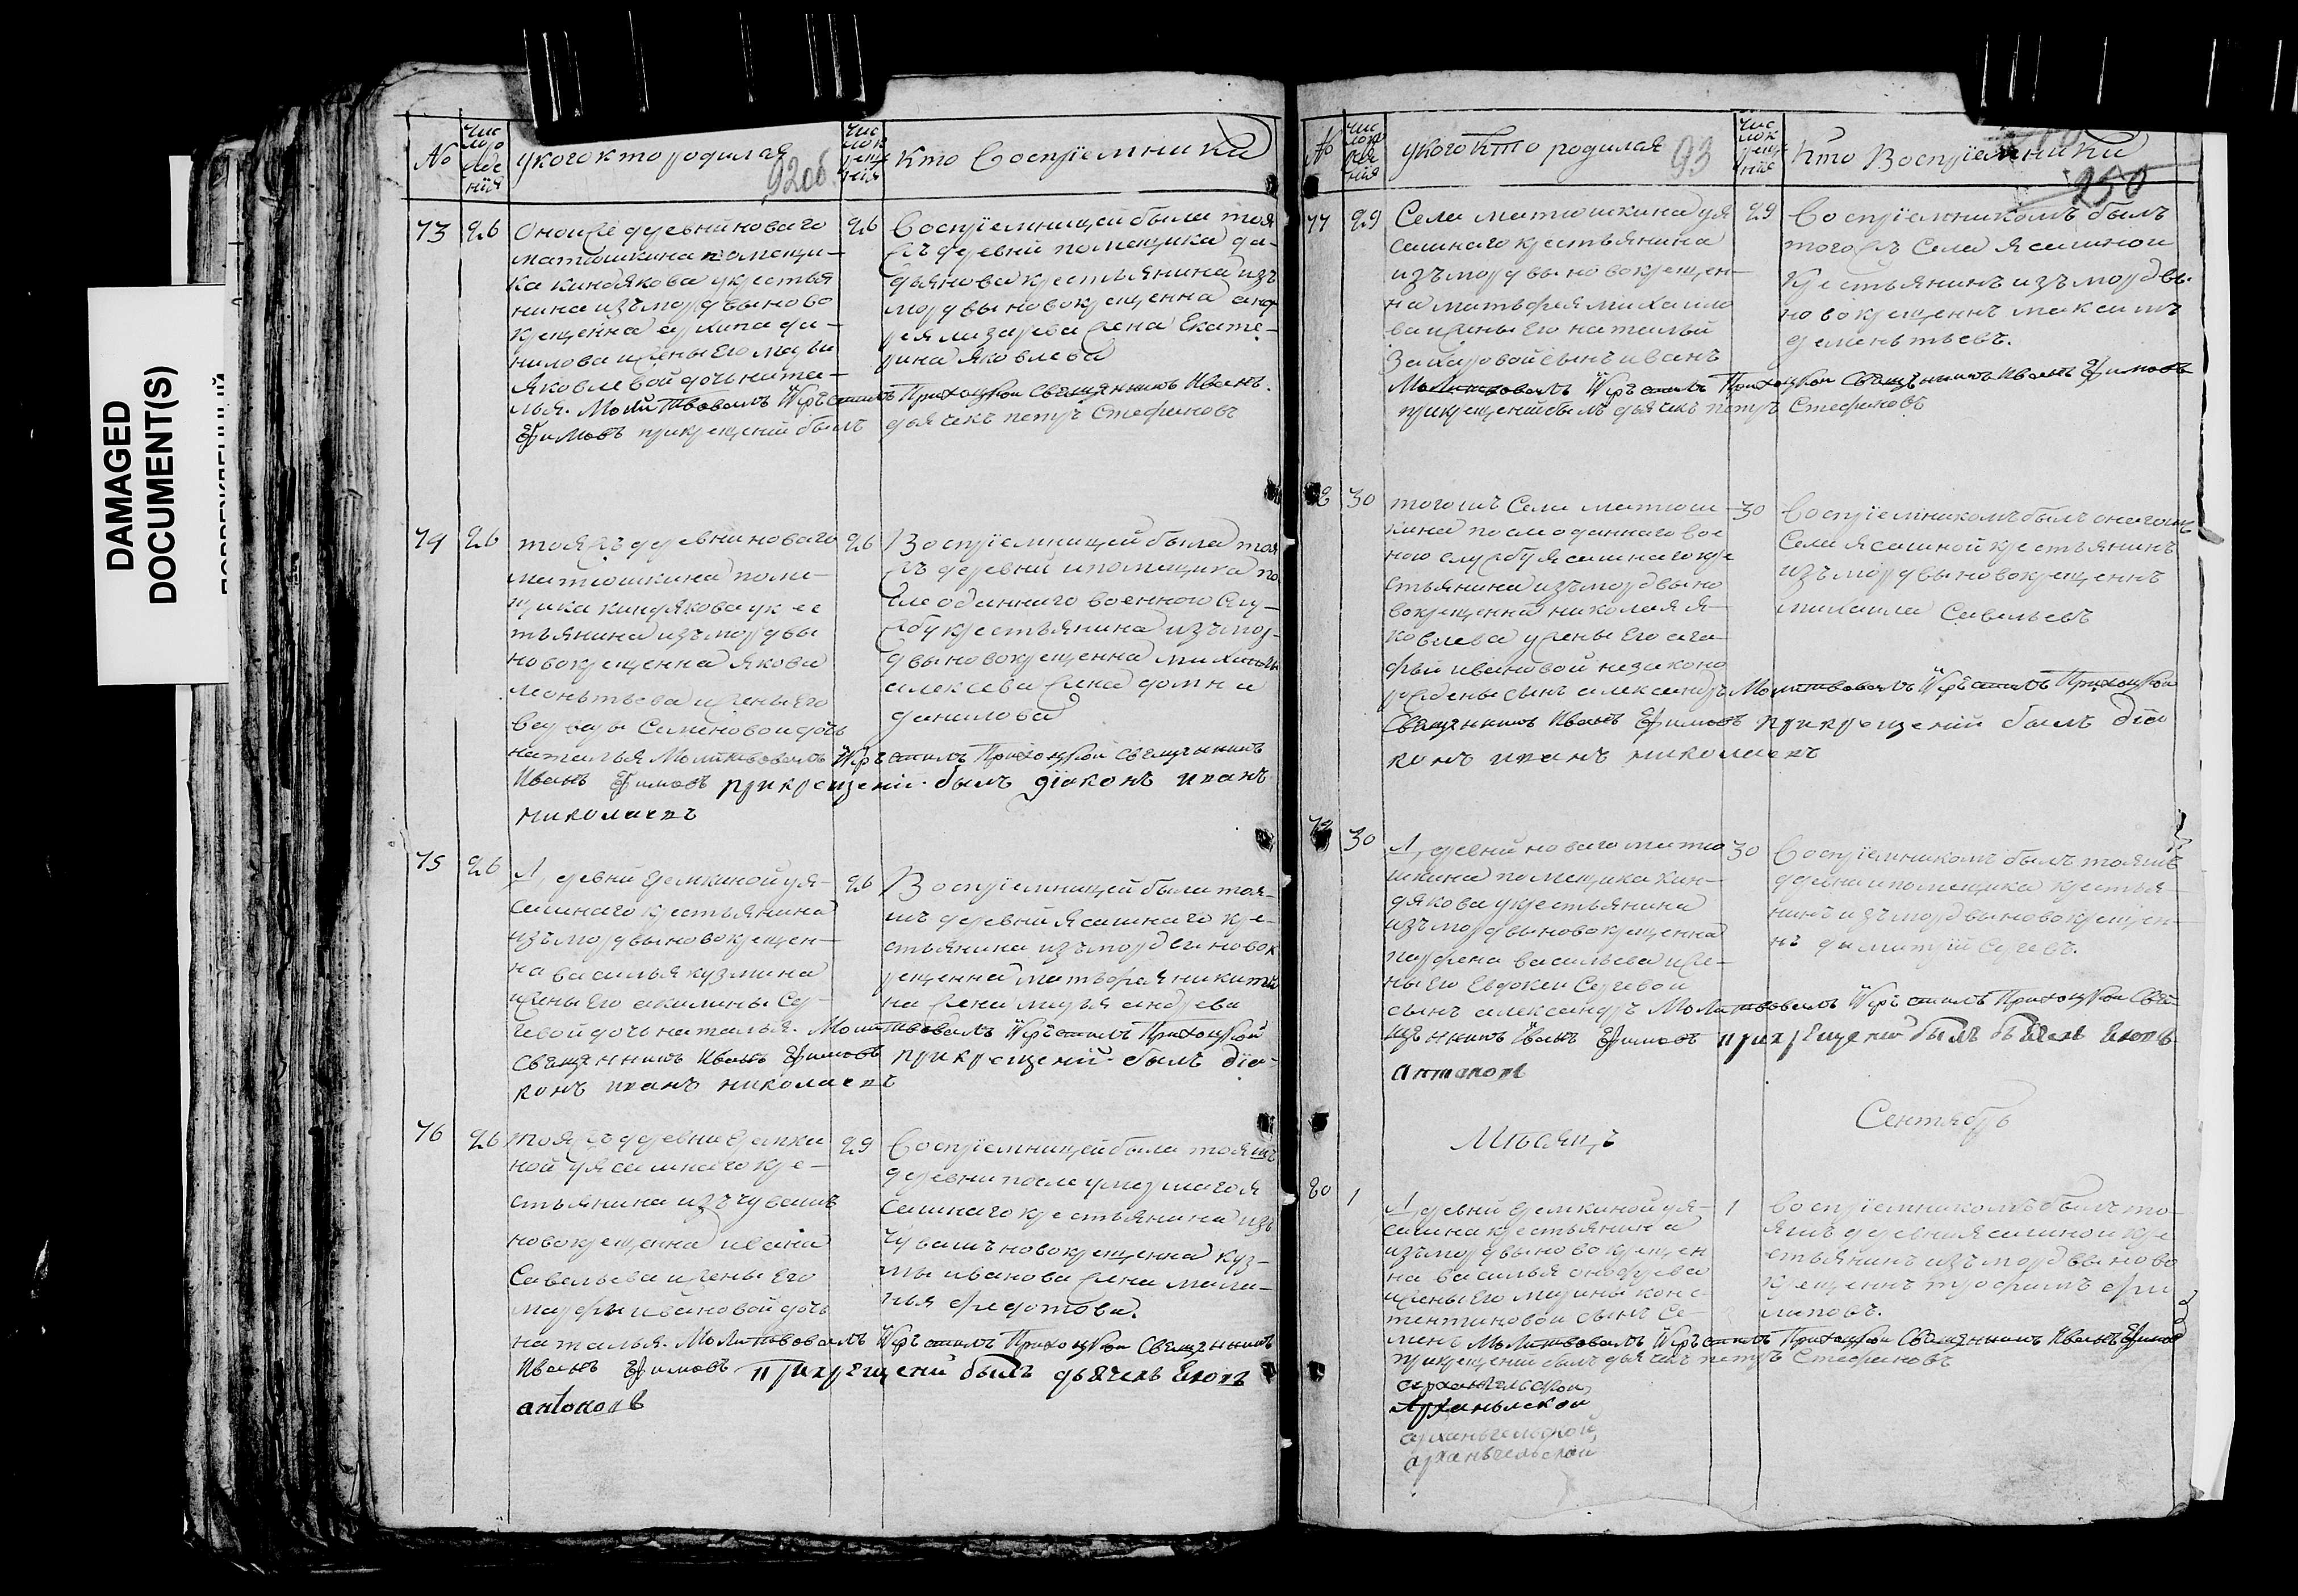 DAMAGED
DOCUMENT(S)
№
чис
ло ро
жде
нія
у кого кто родился
92 об.
чис
ло к
рещ
нія
Кто Воспріемники
73
26
Оной же деревни новаго
матюшкина помещи-
ка киндякова у крестья
нина изъ мордвы ново
крещенна архипа да-
нилова и жены его марьи
Яковлевой дочь ната-
лья. Молитвовалъ и крестилъ Приходской Священникъ Иванъ
Ефимовъ при крещеніи былъ дьячекъ петръ Стефановъ
26
Воспріемницей была тоя
жъ деревни помещика
крестьянина изъ
мордвы новокрещенна анд
рея лазарева жена Екате-
рина Яковлева
74
26
тоя жъ деревни новаго
матюшкина поме-
щика киндякова у крес
тьянина изъ мордвы
новокрещенна Якова
ихены Его
варвары Семеновой дочь
наталья Молитвовалъ и крестилъ Приходской Священникъ
Иванъ Ефимовъ при крещеніи былъ діаконъ иванъ
николаевъ
26
Воспріемницей была тоя
жъ деревни и помещика по
сле отданнаго военною слу-
жбу крестьянина изъ мор-
двы новокрещенна михаила
алексеева жена домна
данилова
75
26
Д, ревни Еремкиной у я-
сашнаго крестьянина
изъ мордвы новокрещен-
на василья кузмина
и жены Его акилины Сер-
геевой дочь наталья. Молитвовалъ и крестилъ Приходской
Священникъ Иванъ Ефимовъ при крещеніи былъ діа-
конъ иванъ николаевъ
26
Воспріемницей была тоя-
жъ деревни Ясашнаго кре-
стьянина изъ мордвы новок
рещенна матьфея никити
на жена марья андреева
76
26
Тоя жъ деревни Еремки
ной у ясашнаго кре-
стьянина изъ чувашъ
новокрещенна ивана
Савельева и жены Его
марфы ивановой дочь
наталья. Молитвовалъ и крестилъ Приходской Священникъ
Иванъ Ефимовъ при крещеніи былъ дьячекъ
антоновъ
29
Воспріемницей была тояжъ
деревни после умершаго я
сашнаго крестьянина изъ
Чувашъ новокрещенна куз-
мы иванова жена мала-
нья федотова.
№
чис
ло ро
жде
нія
у кого Кто родился
93
чис
ло к
рещ
нія
Кто Воспріемники
250
77
29
Села матюшкина у я
сашнаго крестьянина
изъ мордвы новокрещен-
на матьфея михайло
ва и жены Его натальи
Захаровой сынъ иванъ
Молитвовалъ и крестилъ Приходской Священникъ Иванъ Ефимовъ
при крещеніи былъ дьячекъ петръ Стефановъ
29
Воспріемникомъ былъ
того жъ Села Ясашной
Крестьянинъ изъ мордвы
новокрещенъ максимъ
дементьевъ.
78
30
того жъ Села матюш
кина после отданнаго вое
ную службу ясашнаго кре
стьянина изъ мордвы но
вокрещенна николая Я-
ковлева у жены Его ага-
фьи ивановой незаконо
рожденны сынъ александръ Молитвовалъ и крестилъ Приходской
Священникъ Иванъ Ефимовъ при крещеніи былъ діа
конъ иванъ николаевъ
30
Воспріемникомъ былъ онаго жъ
Села ясашной крестьянинъ
изъ мордвы новокрещенъ
михаила Савельевъ
79
30
Д, ревни новаго матю
шкина помещика кин-
дякова у крестьянина
изъ мордвы новокрещенна
парфена васильева и же-
ны Его Евдокеи Сергевой
сынъ александръ Молитвовалъ и крестилъ Приходской Свя-
щенникъ Иванъ Ефимовъ при крещеніи былъ дьячекъ
антоновъ
30
Воспріемникомъ былъ тояжъ
деревни и помещика крестья-
нинъ изъ мордвы новокрещен-
нъ димитрій Сергевъ.
Мѣсяцъ
Сентябрь
80
1
Д, ревни Еремкиной у я-
сашна крестьянина
изъ мордвы новокрещен
на василья онофреева
и жены Его марины конс-
тентиновой сынъ Се-
менъ Молитвовалъ и крестилъ Приходской Священникъ Иванъ Ефимовъ
при крещеніи былъ дьячекъ петръ Стефановъ
1
Воспріемникомъ былъ то-
яжъ деревни ясашной кре
стьянинъ изъ мордвы ново
крещенъ трофимъ фи
липовъ.
архангельской
Архангельской
архангельской
архангельской